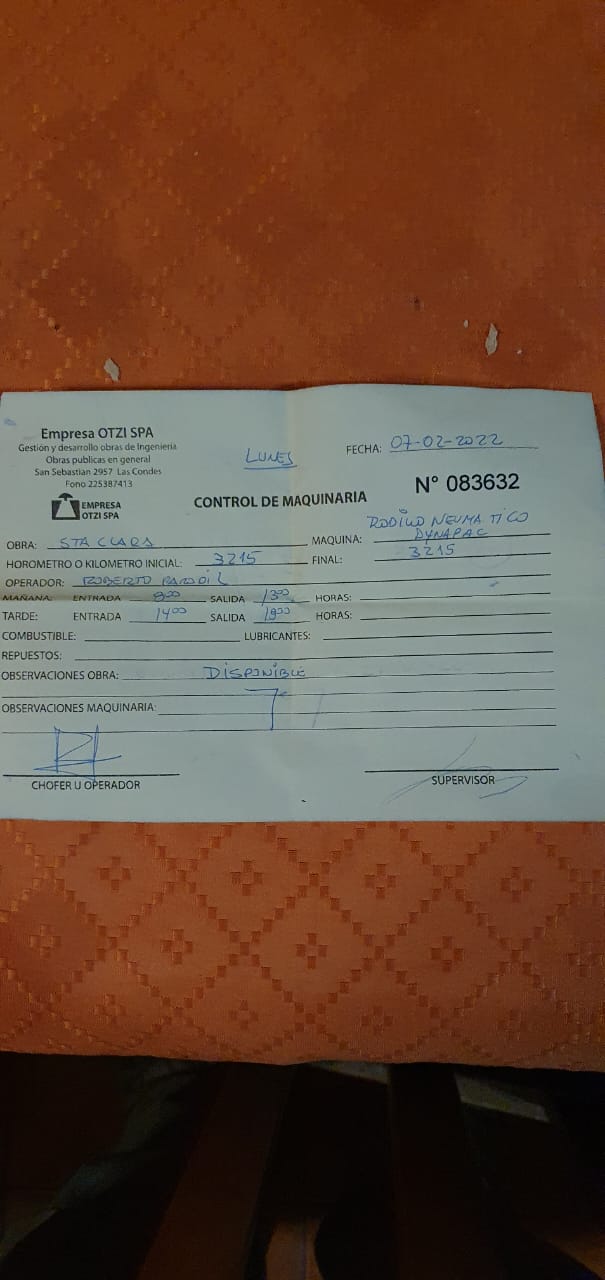 Empresa OTZI SPA
Gestión y desarrollo obras de Ingenieria
Obras publicas en general
San Sebastian 2957 Las Condes
Fono 225387413
EMPRESA
OTZI SPA
LUNES
FECHA: 07-02-2022
CONTROL DE MAQUINARIA
N° 083632
OBRA: STA CLARA
MAQUINA: RODILLO NEUMATICO
DYNAPAC
HOROMETRO O KILOMETRO INICIAL: 3215 FINAL: 3215
OPERADOR: ROBERTO
MAÑANA: ENTRADA 8:00 SALIDA 13:00 HORAS:
TARDE: ENTRADA 14:00 SALIDA HORAS:
COMBUSTIBLE: LUBRICANTES:
REPUESTOS:
OBSERVACIONES OBRA: DISPONIBLE
OBSERVACIONES MAQUINARIA:
CHOFER U OPERADOR SUPERVISOR